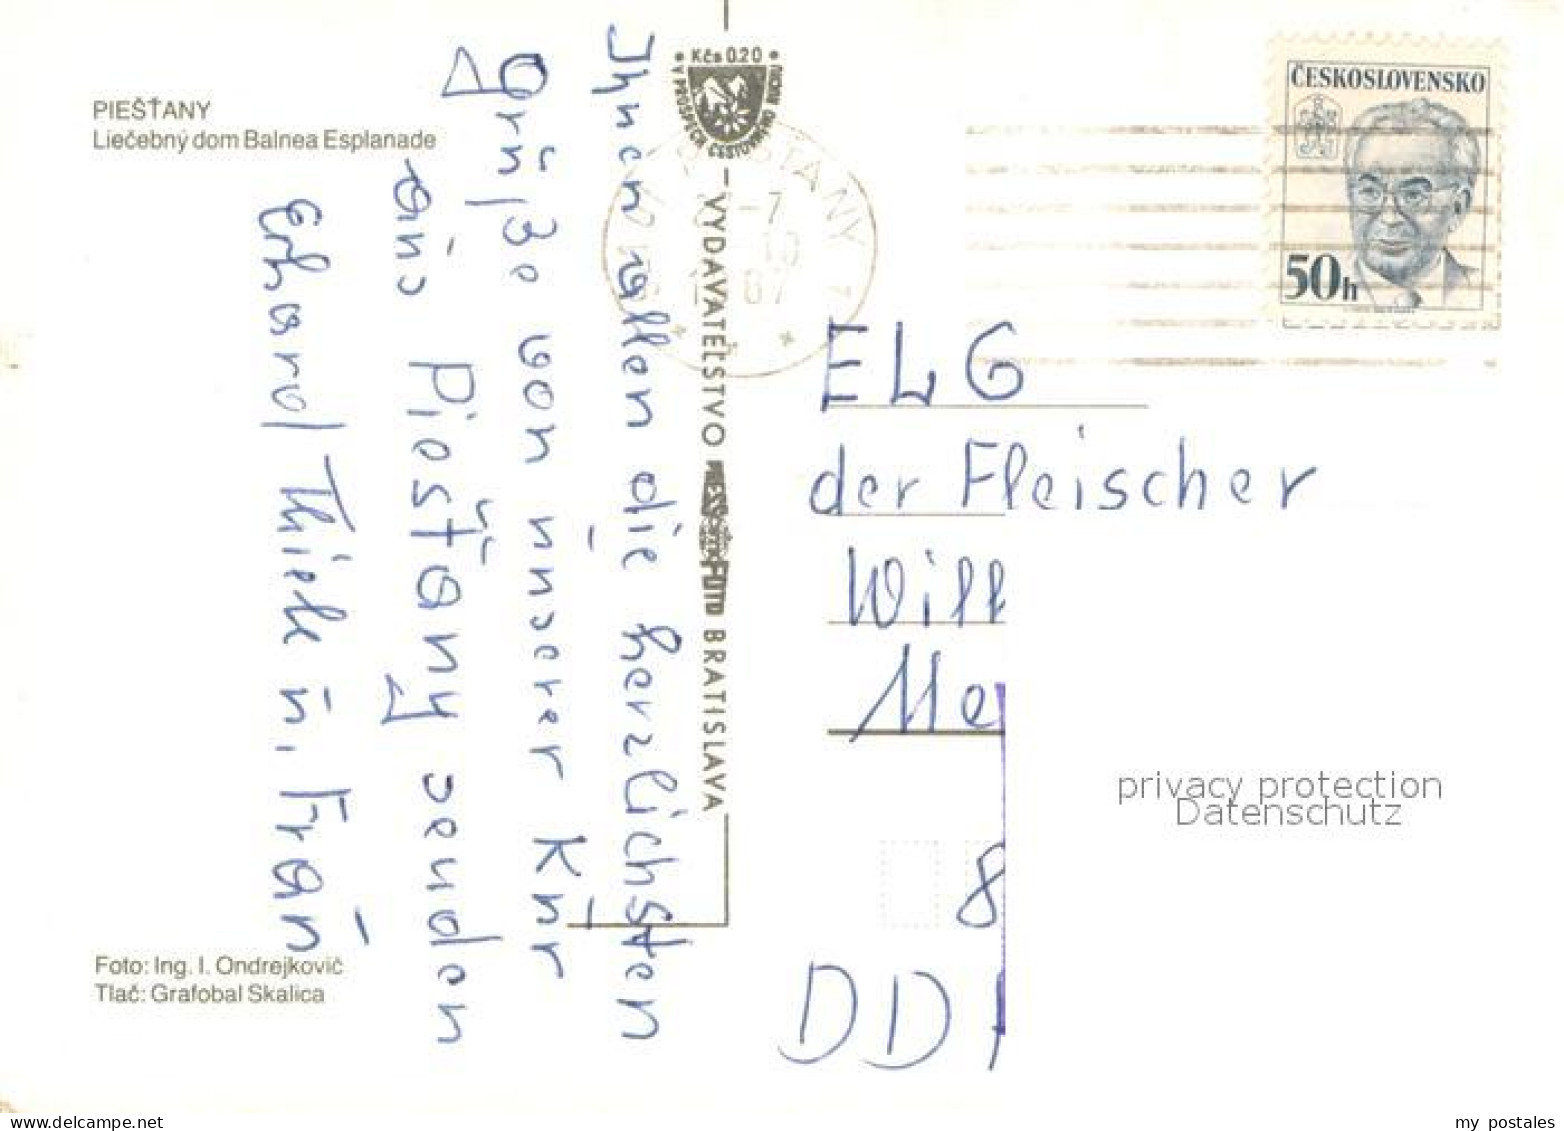 PIEŠŤANY
Liečebný dom Balnea Esplanade
Ihnen allen die herzlichsten
Grüße von unserer Kur
aus Piešťany senden
Erhard Thiele u. Frau
Foto: Ing. I. Ondrejkovič
Tlač: Grafobal Skalica
Kčs 0.20
V PROSPECH CESTOVNÉHO RUCHU
VYDAVATEĽSTVO PRESSFOTO BRATISLAVA
ČESKOSLOVENSKO
50h
ELG
der Fleischer
Will
Me
8
DD
privacy protection
Datenschutz
my postales
www.delcampe.net